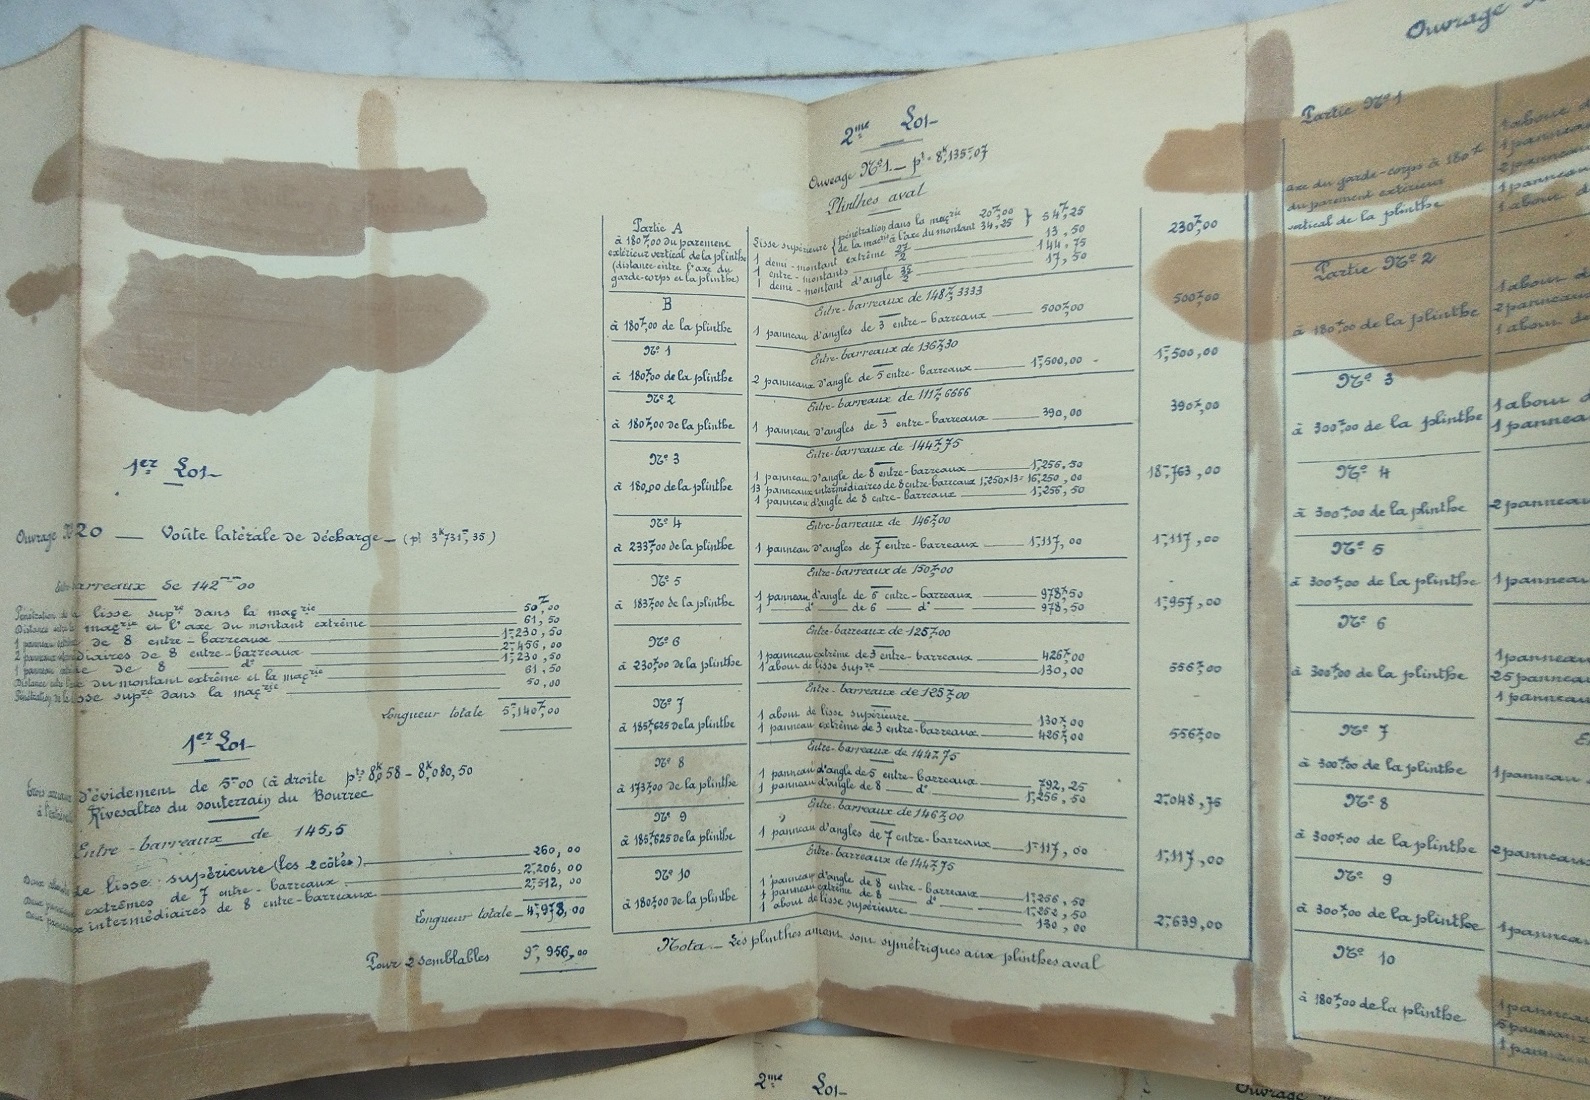 1er Lot
Ouvrage N°20 — Voûte latérale de décharge — (pt 3k731m,35)
Entre-barreaux de 142mm00
Pénétration de la lisse supre dans la maçrie 50,00
Distance entre la maçrie et l'axe du montant extrême 61,50
1 panneau extrême de 8 entre-barreaux 1m230,50
2 panneaux intermédiaires de 8 entre-barreaux 2m456,00
1 panneau extrême de 8 — d° — 1m230,50
Distance entre l'axe du montant extrême et la maçrie 61,50
Pénétration de la lisse supre dans la maçrie 50,00
Longueur totale 5m140,00
1er Lot
d'évidement de 5m00 (à droite pts 8k058 - 8k,080,50
Rivesaltes du souterrain du Bourrec
Entre-barreaux de 145,5
de lisse supérieure (les 2 côtés) 260,00
extrêmes de 7 entre-barreaux 2m206,00
intermédiaires de 8 entre-barreaux 2m512,00
Longueur totale 4m978,00
Pour 2 semblables 9m,956,00
2me Lot
Ouvrage N°1 — pt 8k,135m07
Plinthes aval
Partie A
à 180,00 du parement
extérieur vertical de la plinthe
(distance entre l'axe du
garde-corps et la plinthe)
Lisse supérieure { pénétration dans la maçrie 20,00 } 54,25
{ de la maçrie à l'axe du montant 34,25
1 demi-montant extrême 27/2 13,50
1 entre-montants 144,75
1 demi-montant d'angle 35/2 17,50
230,00
B
à 180,00 de la plinthe
Entre-barreaux de 148,3333
1 panneau d'angles de 3 entre-barreaux 500,00
500,00
N° 1
à 180,00 de la plinthe
Entre-barreaux de 136,30
2 panneaux d'angle de 5 entre-barreaux 1m,500,00
1m,500,00
N° 2
à 180,00 de la plinthe
Entre-barreaux de 111,6666
1 panneau d'angles de 3 entre-barreaux 390,00
390,00
N° 3
à 180,00 de la plinthe
Entre-barreaux de 144,75
1 panneau d'angle de 8 entre-barreaux 1m,256,50
13 panneaux intermédiaires de 8 entre-barreaux 1m,250x13= 16,250,00
1 panneau d'angle de 8 entre-barreaux 1m,256,50
18m,763,00
N° 4
à 233,00 de la plinthe
Entre-barreaux de 146,00
1 panneau d'angles de 7 entre-barreaux 1m,117,00
1m,117,00
N° 5
à 183,00 de la plinthe
Entre-barreaux de 150,00
1 panneau d'angle de 6 entre-barreaux 978,50
1 — d° — de 6 — d° — 978,50
1m,957,00
N° 6
à 230,00 de la plinthe
Entre-barreaux de 125,00
1 panneau extrême de 3 entre-barreaux 426,00
1 about de lisse supre 130,00
556,00
N° 7
à 185,625 de la plinthe
Entre-barreaux de 125,00
1 about de lisse supérieure 130,00
1 panneau extrême de 3 entre-barreaux 426,00
556,00
N° 8
à 173,00 de la plinthe
Entre-barreaux de 144,75
1 panneau d'angle de 5 entre-barreaux 792,25
1 panneau d'angle de 8 — d° — 1m,256,50
2m,048,75
N° 9
à 185,625 de la plinthe
Entre-barreaux de 146,00
1 panneau d'angles de 7 entre-barreaux 1m,117,00
1m,117,00
N° 10
à 180,00 de la plinthe
Entre-barreaux de 144,75
1 panneau d'angle de 8 entre-barreaux 1m,256,50
1 panneau extrême de 8 — d° — 1m,252,50
1 about de lisse supérieure 130,00
2m,639,00
Nota — Les plinthes amont sont symétriques aux plinthes aval
Ouvrage
Partie N° 1
axe du garde-corps à 180
du parement extérieur
vertical de la plinthe
1 about d
1 panneau
2 panneau
1 panneau
1 about d
Partie N° 2
à 180,00 de la plinthe
1 about d
2 panneaux
1 about de
N° 3
à 300,00 de la plinthe
1 about d
1 pannea
N° 4
à 300,00 de la plinthe
2 panneau
N° 5
à 300,00 de la plinthe
1 panneau
N° 6
à 300,00 de la plinthe
1 panneau
25 panneau
1 panneau
N° 7
à 300,00 de la plinthe
E
1 panneau
N° 8
à 300,00 de la plinthe
2 panneaux
N° 9
à 300,00 de la plinthe
1 panneau
N° 10
à 180,00 de la plinthe
1 panneau
5 panneaux
1 panneau
2me Lot
Ouvrage